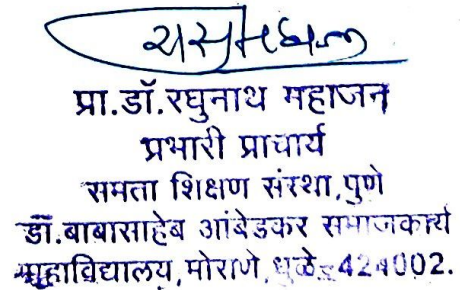 प्रा.डॉ.रघुनाथ महाजन
प्रभारी प्राचार्य
समता शिक्षण संस्था,पुणे
डॉ.बाबासाहेब आंबेडकर समाजकार्य
महाविद्यालय,मोराणे,धुळे. 424002.